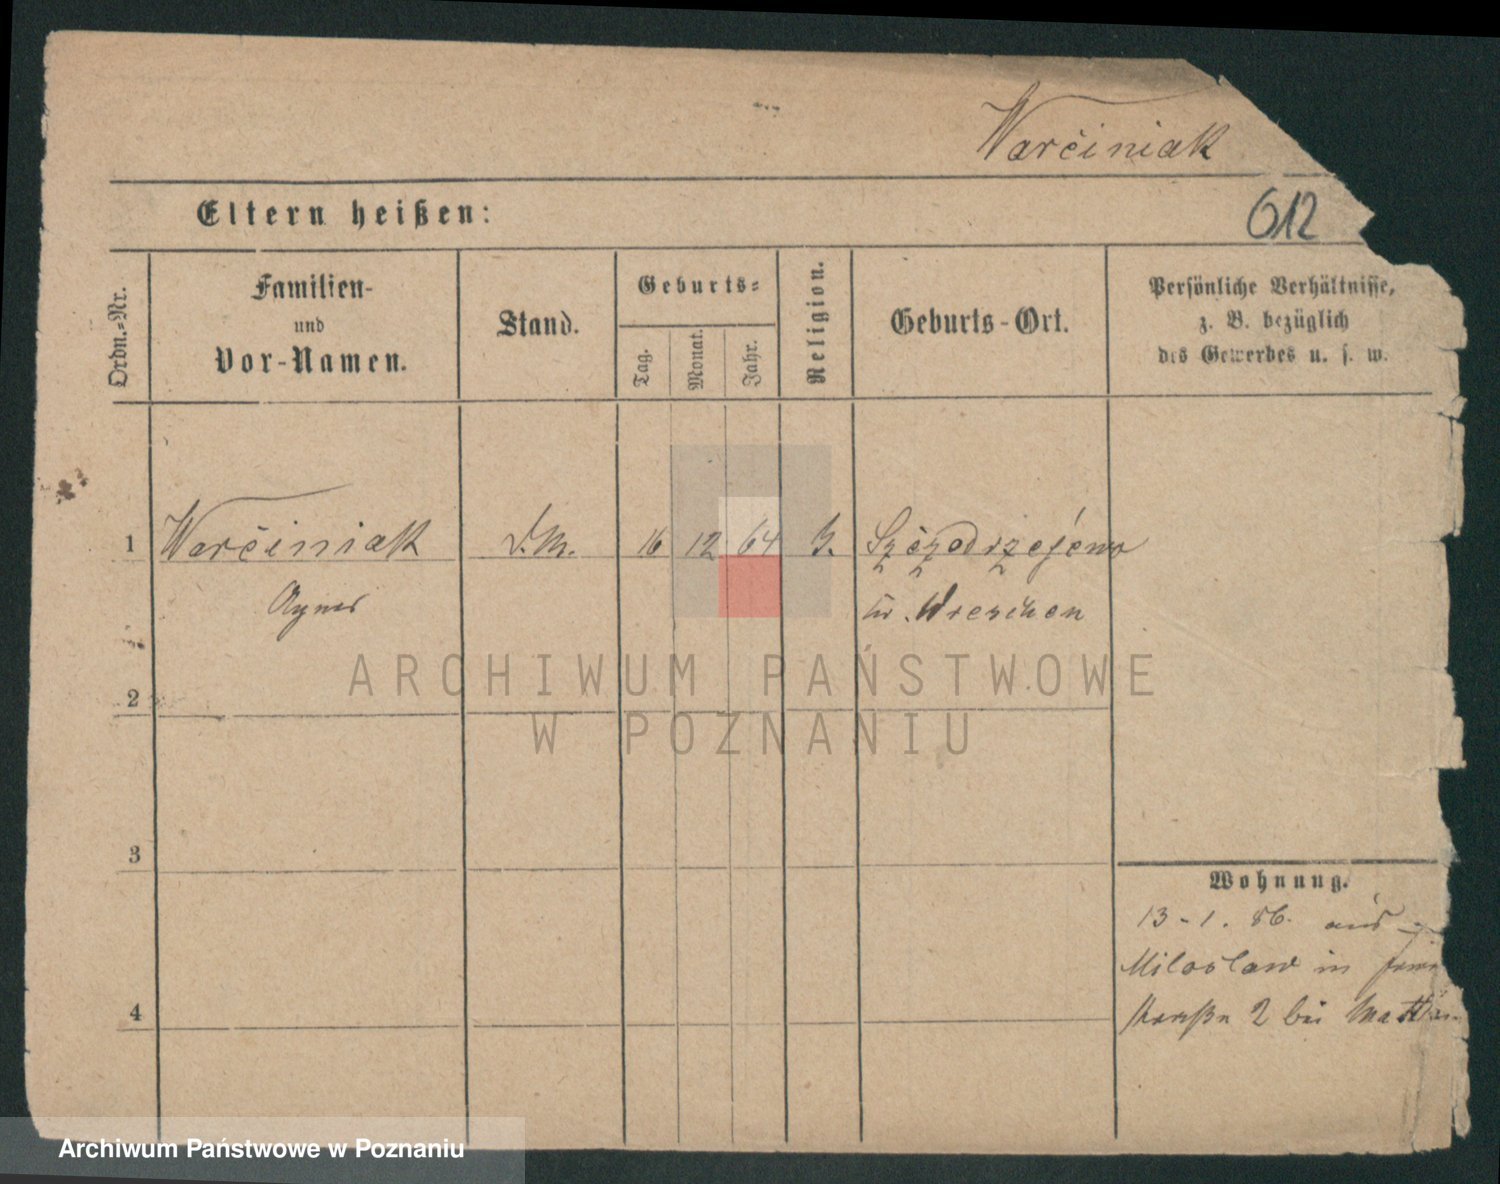 Warciniak
Eltern heißen:
612
Ordn.-Nr.
Familien-
und
Vor-Namen.
Stand.
Geburts-
Tag.
Monat.
Jahr.
Religion.
Geburts-Ort.
Persönliche Verhältnisse,
z. B. bezüglich
des Gewerbes u. s. w.
1 Warciniak D.M. 16 12 64
Agnes Wreschen
2
3
4
Wohnung.
13-1. 86. aus
Miloslaw in
straße 2 bei
ARCHIWUM PAŃSTWOWE
W POZNANIU
Archiwum Państwowe w Poznaniu